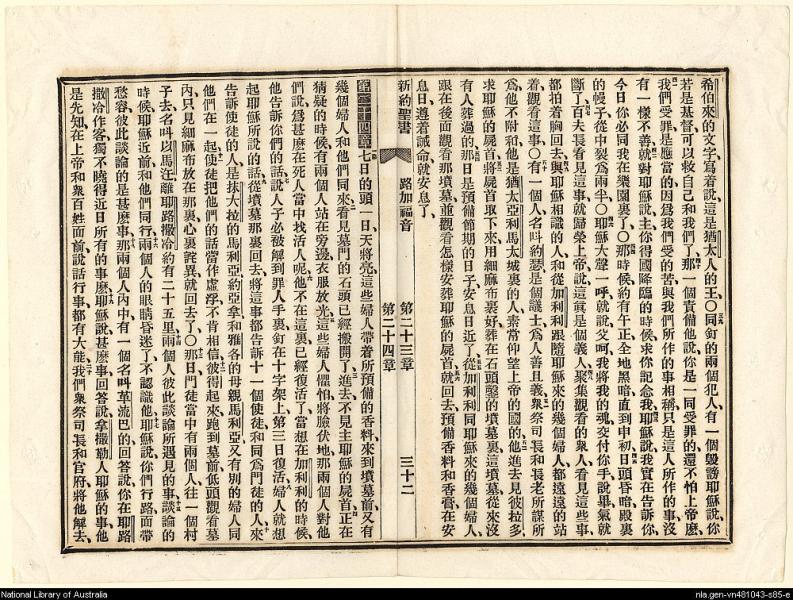 希伯來的文字寫着說這是猶太人的王〇同釘的兩個犯人有一個毀謗耶穌說你
若是基督可以救自己和我們了那一個責備他說你是一同受罪的還不怕上帝麽
我們受罪是應當的因爲我們所受的苦與我們所作的事相稱只是這人所作的事沒
有一樣不善就對耶穌說主你得國降臨的時候求你記念我耶穌說我實在告訴你
今日你必同我在樂園裏了〇那時候約有午正全地黑暗直到申初日頭昏暗殿裏
的幔子從中裂爲兩半〇耶穌大聲一呼就說父呵我將我的魂交付你手說畢氣就
斷了百夫長看見這事就歸榮上帝說這眞是個義人聚集觀看的衆人看見這些事
都拍着胸回去與耶穌相識的人和從加利利跟隨耶穌來的幾個婦人都遠遠的站
着觀看這事〇有一個人名叫約瑟是個議士爲人善且義衆祭司長和長老所謀所
爲他不附和他是猶太亞利馬太城裏的人素常仰望上帝的國的他進去見彼拉多
求耶穌的屍首將屍首取下來用細麻布裹好葬在石頭鑿的墳墓裏這墳墓從來沒
有人葬過的那日是預備節期的日子安息日近了從加利利同耶穌來的幾個婦人
跟在後面看那墳墓並觀看怎樣安葬耶穌的屍首就回去預備香料和香膏在安
息日遵着誡命就安息了
新約聖書 路加福音 第二十三章 第二十四章 三十二
第二十四章七日的頭一日天將亮這些婦人帶着所預備的香料來到墳墓前又有
幾個婦人和他們同來看見墓門的石頭已經搬開了進去不見主耶穌的屍首正在
猜疑的時候有兩個人站在旁邊衣服放光這些婦人懼怕將臉伏地那兩個人對他
們說爲甚麽在死人當中找活人呢他不在這裏已經復活了當想在加利利的時候
他告訴你們的話說人子必被解到罪人手裏釘在十字架上第三日復活婦人就想
起耶穌所說的話從墳墓那裏回去將這事都告訴十一個使徒和同爲門徒的人來
告訴使徒的人是抹大拉的馬利亞約亞拿和雅各的母親馬利亞又有別的婦人同
他們在一起使徒把他們的話當作虛浮不肯相信彼得起來跑到墓前低頭觀看墓
內只見細麻布放在那裏心裏詫異就回去了〇那日門徒當中有兩個人往一個村
子去名叫以馬汪離耶路撒冷約有二十五里兩個人彼此談論所遇見的事談論的
時候耶穌近前和他們同行兩個人的眼睛昏迷了不認識他耶穌說你們行路面帶
愁容彼此談論的是甚麽事那兩個人內中有一個名叫革流巴的回答說你在耶路
撒冷作客獨不曉得近日所有的事麽耶穌說甚麽事回答說拿撒勒人耶穌的事他
是先知在上帝和衆百姓面前說話行事都有大能我們衆祭司長和官府將他解去
National Library of Australia
nla.gen-vn481043-s85-e